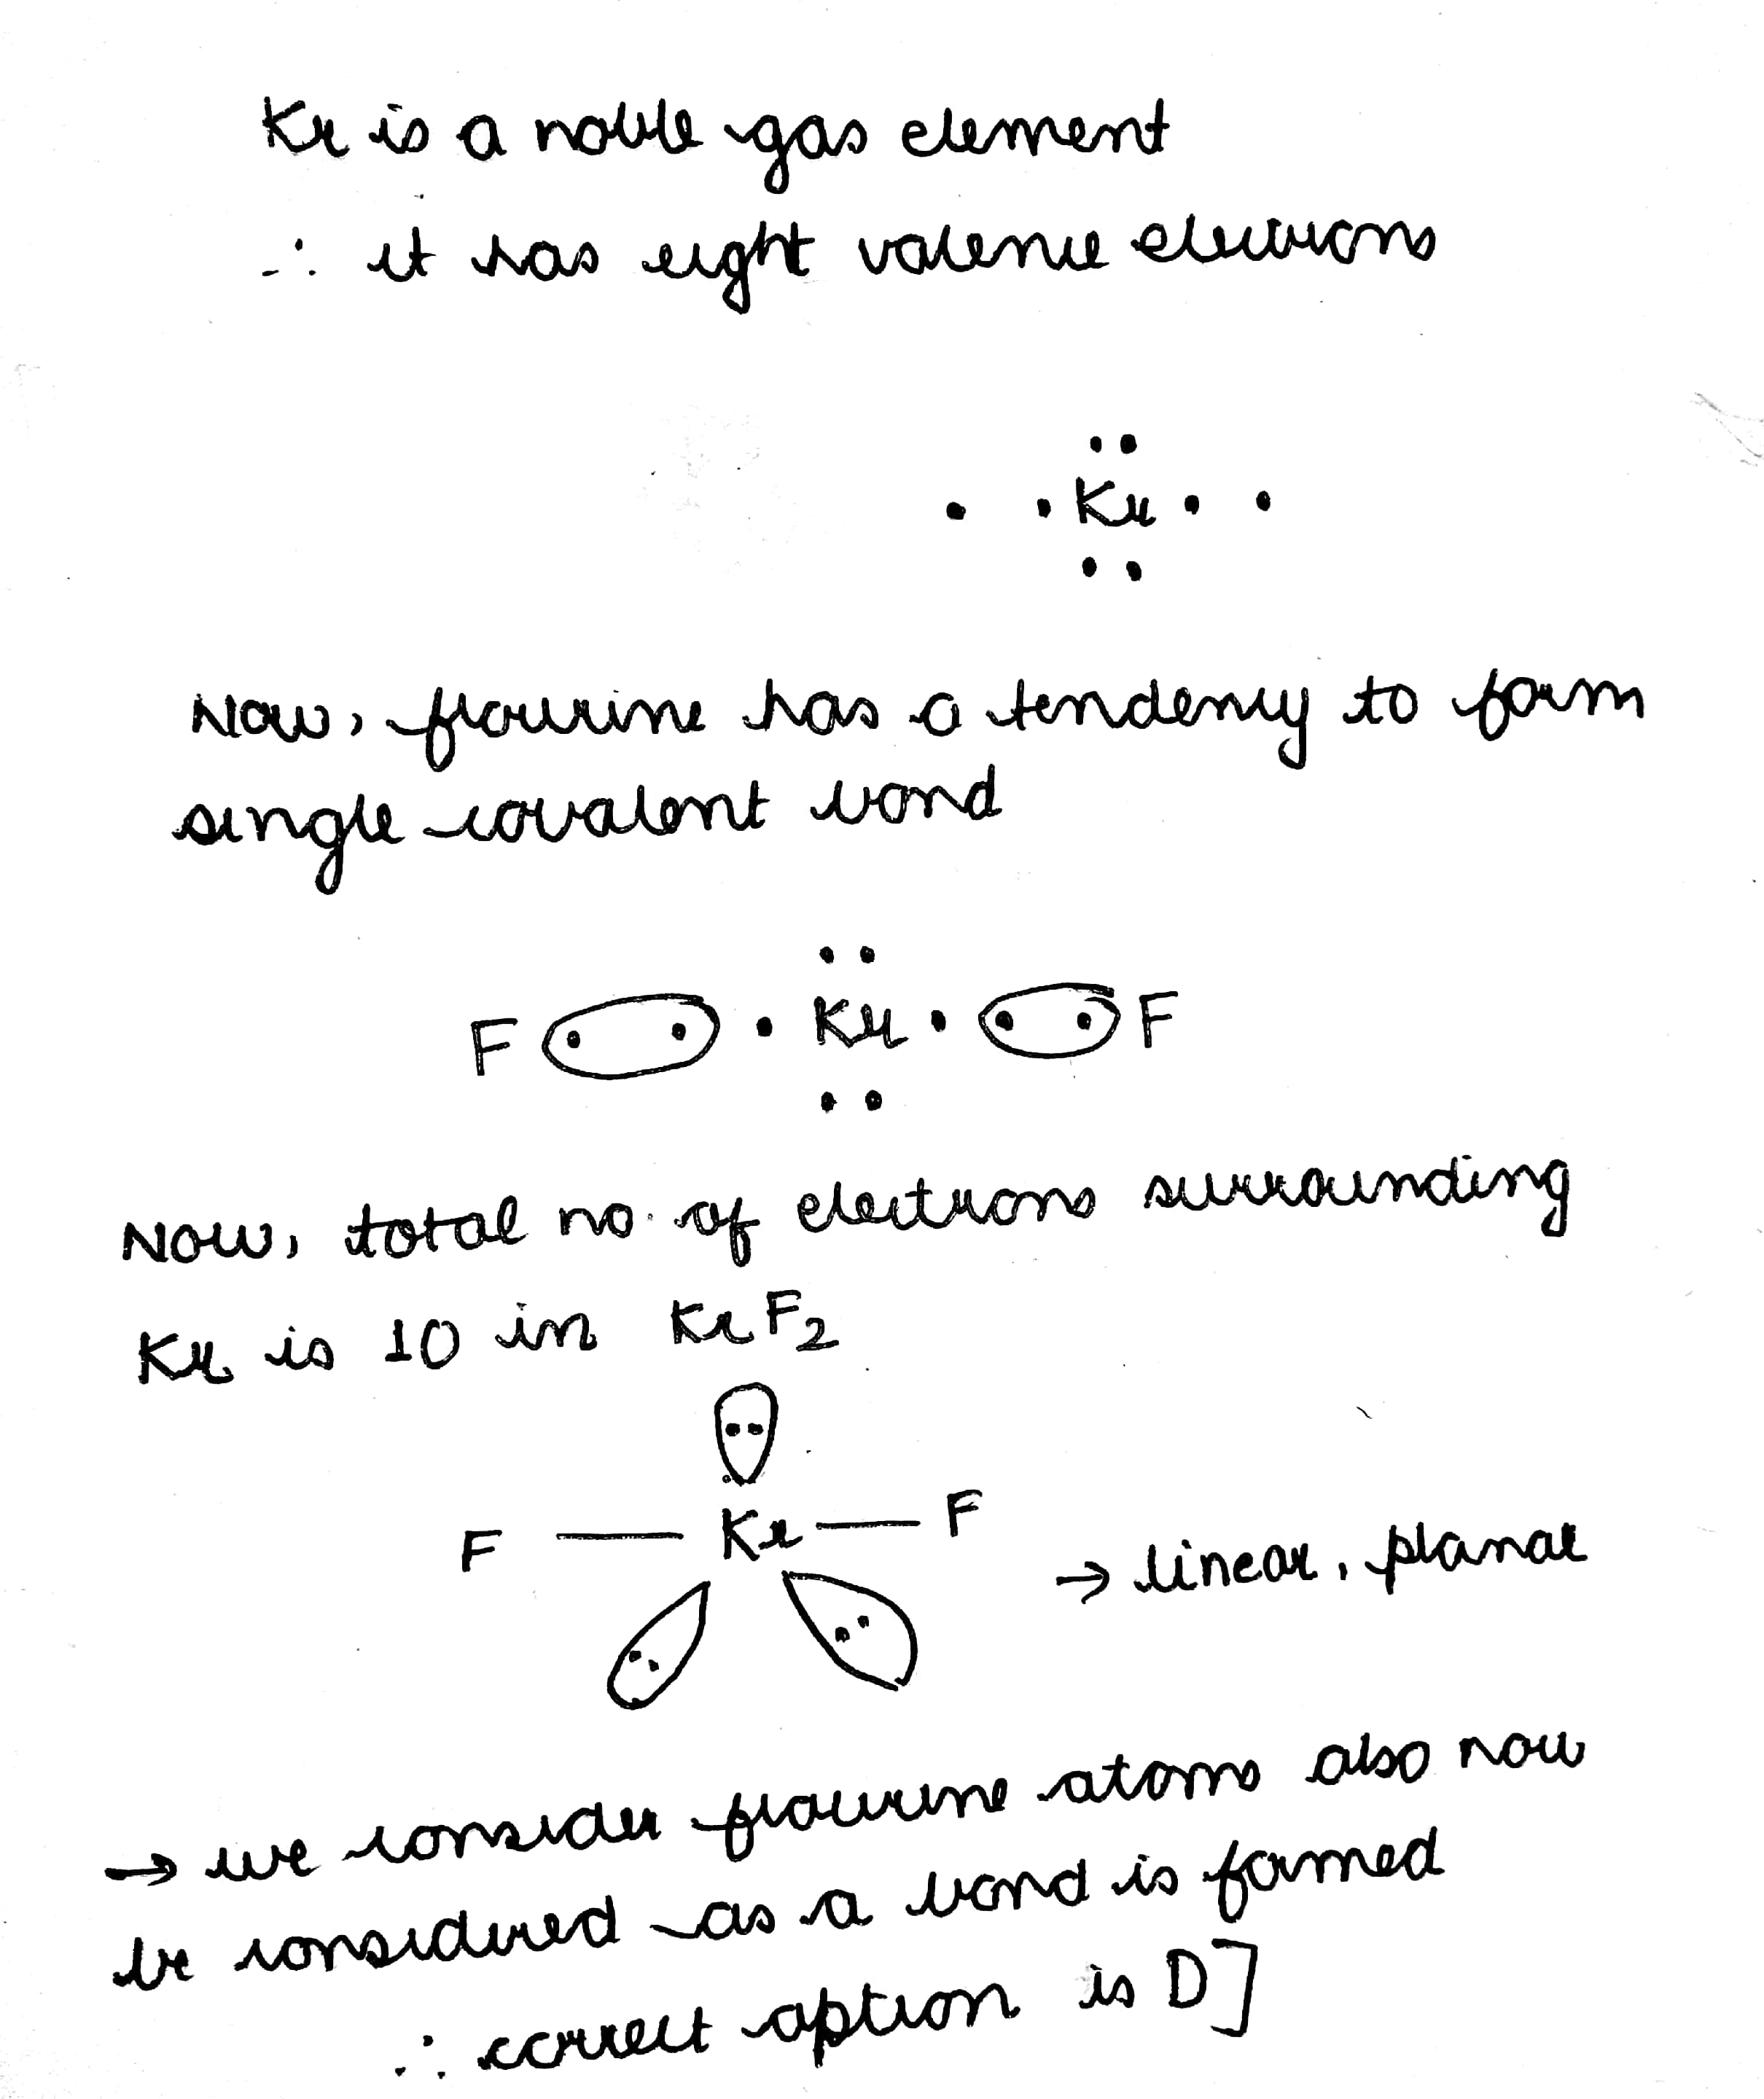 Kr is a noble gas element
∴ it has eight valence electrons
Kr
Now, flourine has a tendency to form
single covalent bond
F Kr F
Now, total no. of electrons surrounding
Kr is 10 in KrF₂
F — Kr — F
→ linear, planar
→ we consider flourine atoms also now
be considered as a bond is formed
∴ correct option is D]